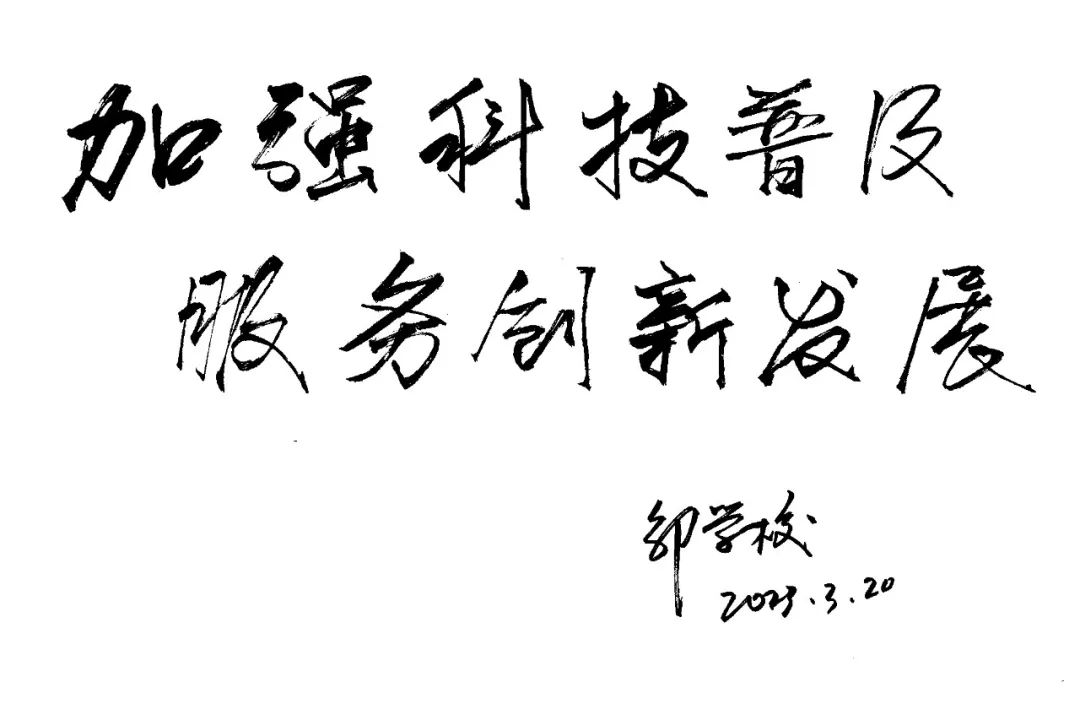 加强科技普及
服务创新发展
邹学校
2023.3.20